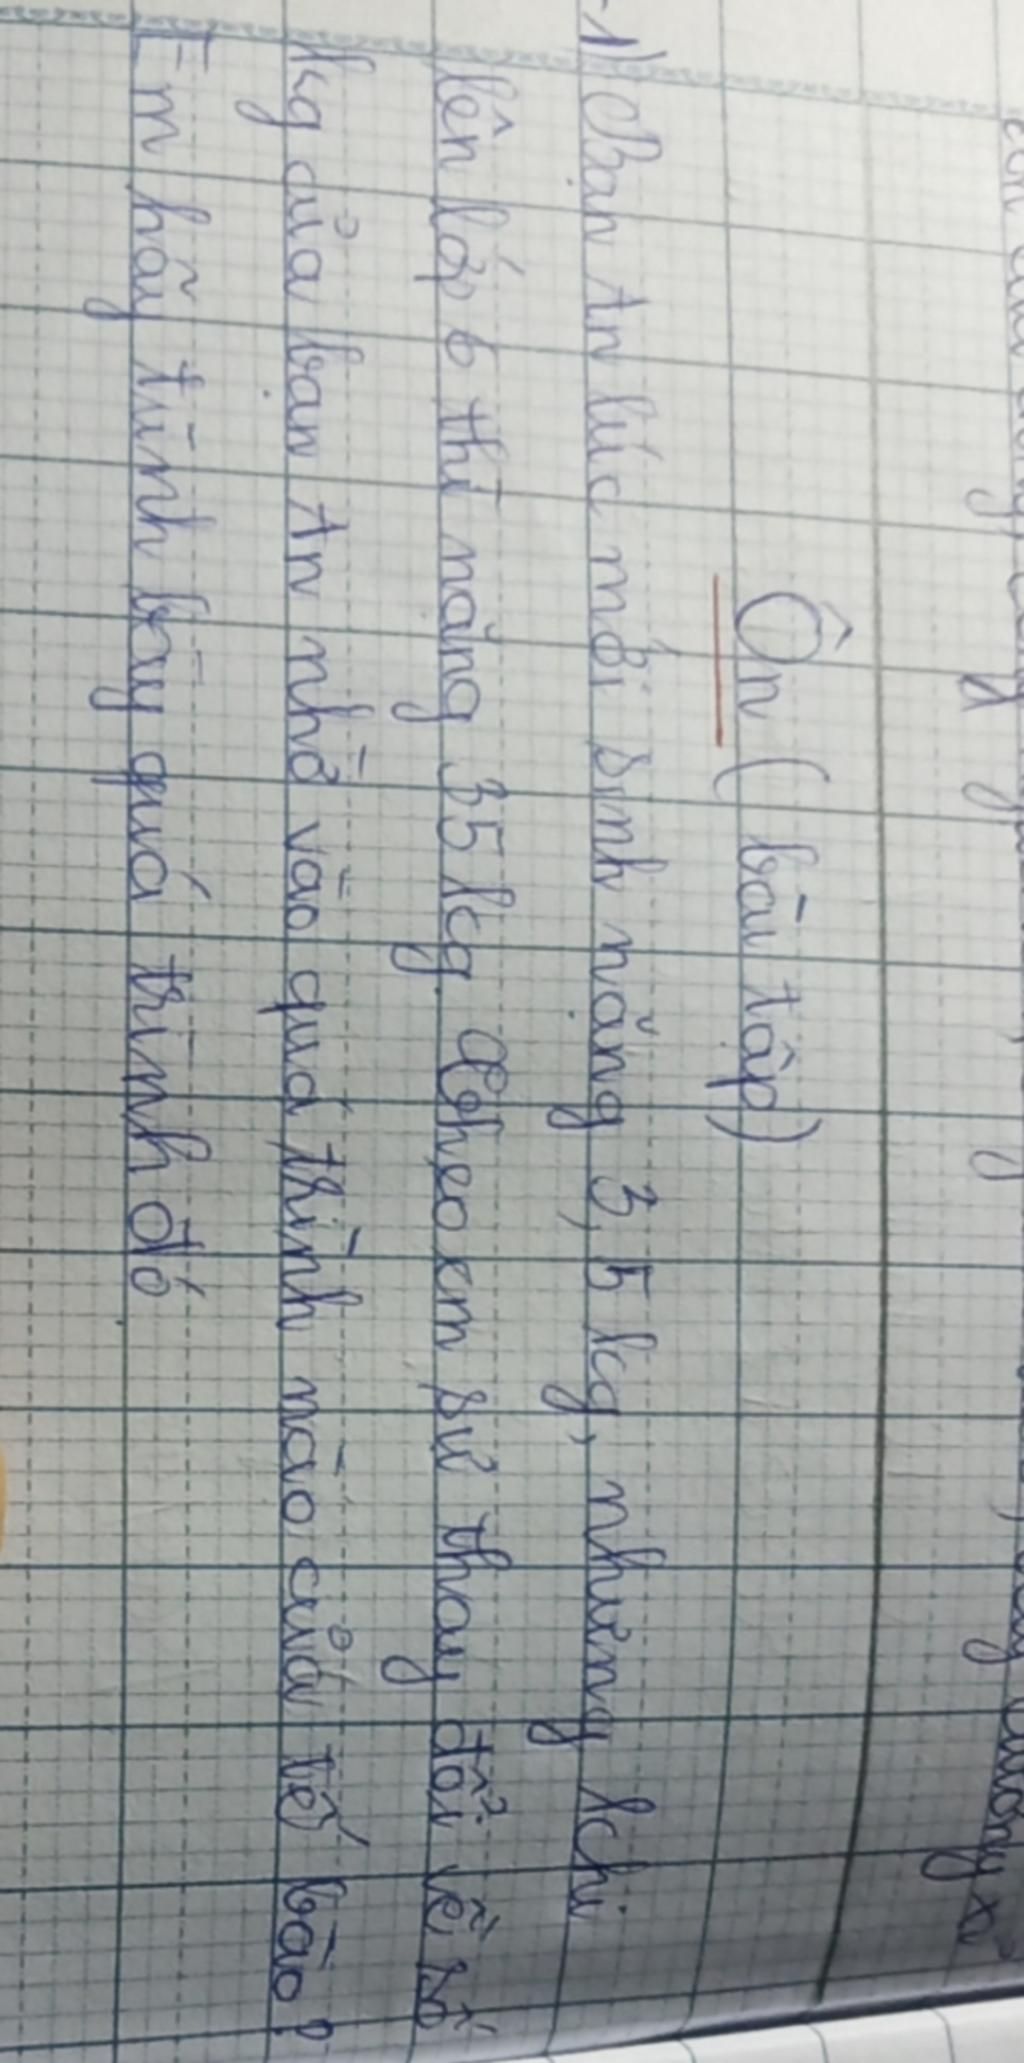 Ôn (bài tập)
1) Bạn An lúc mới sinh nặng 3,5 kg, nhưng khi
lên lớp 6 thì nặng 35 kg. Theo em sự thay đổi về số
kg của bạn An nhờ vào quá trình nào của tế bào?
Em hãy trình bày quá trình đó